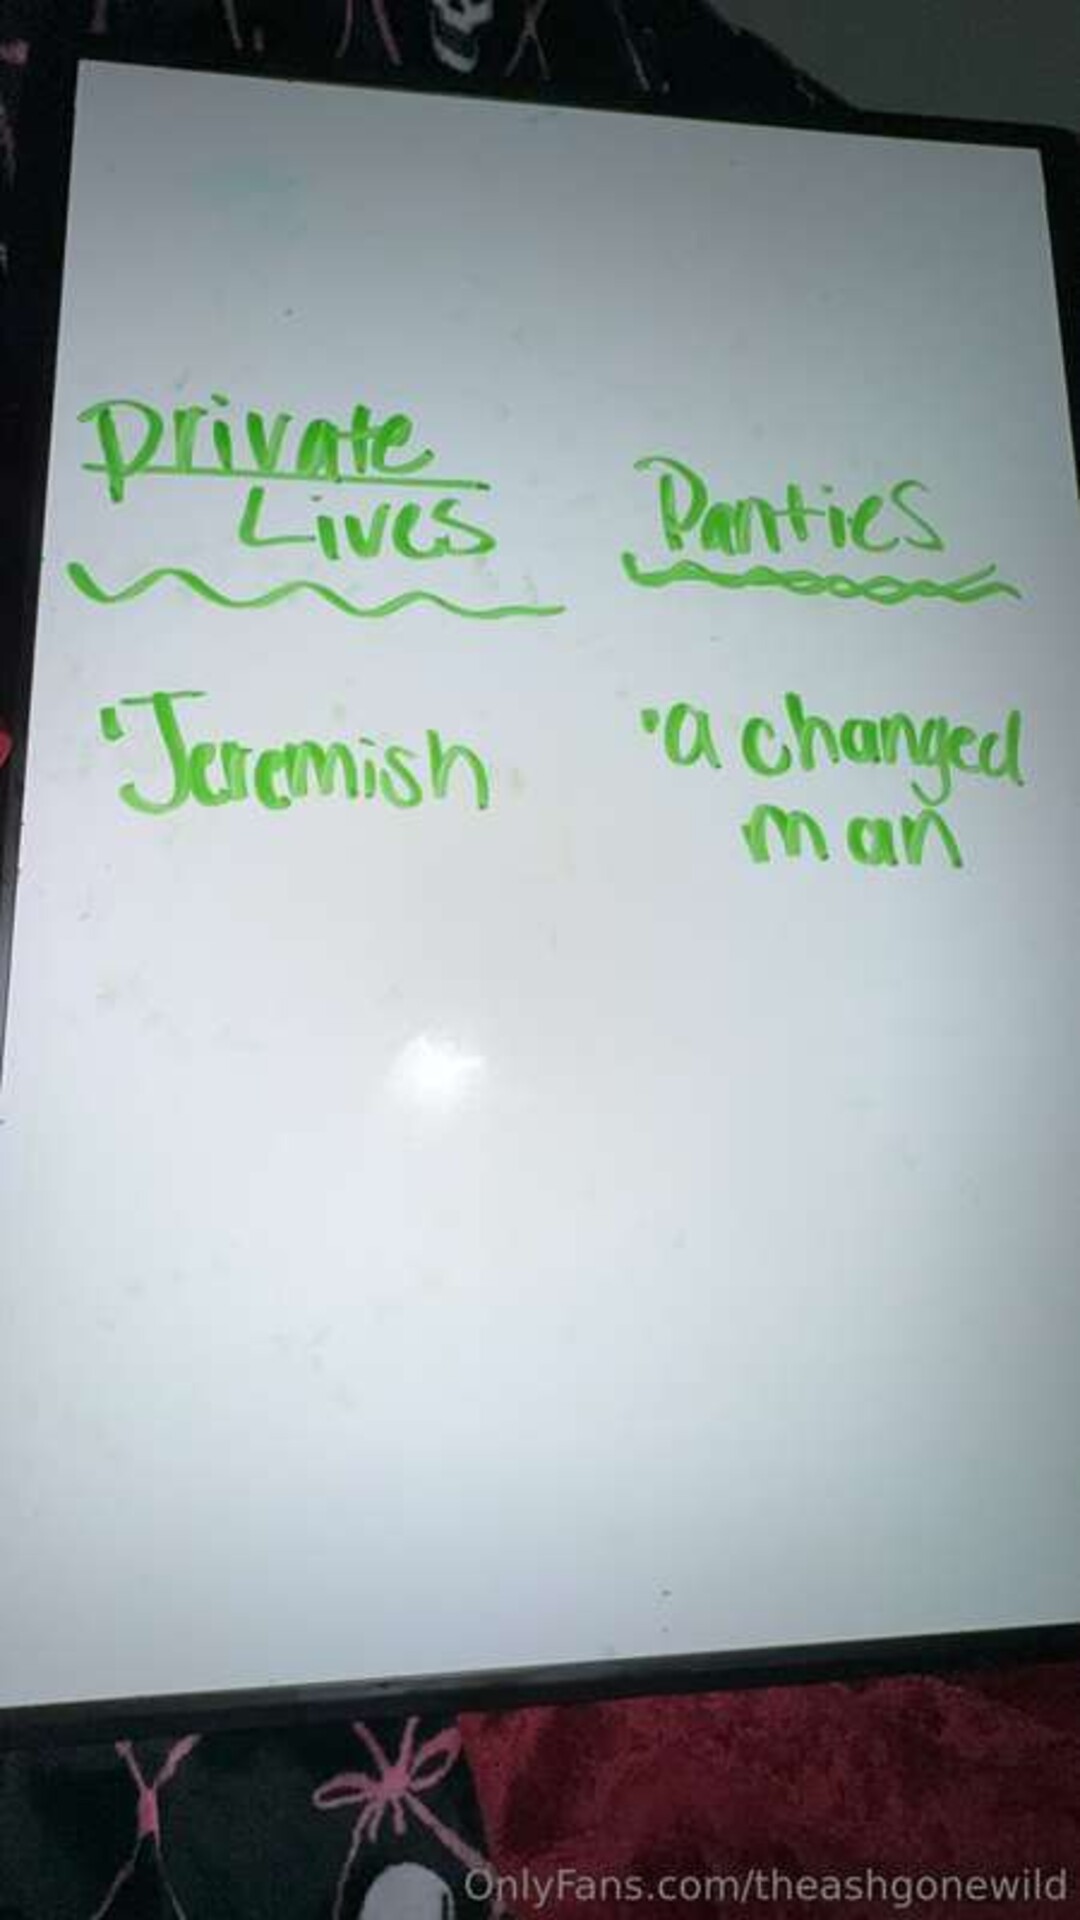 Private
Lives
Panties
'Jeremish
•a changed
man
OnlyFans.com/theashgonewild